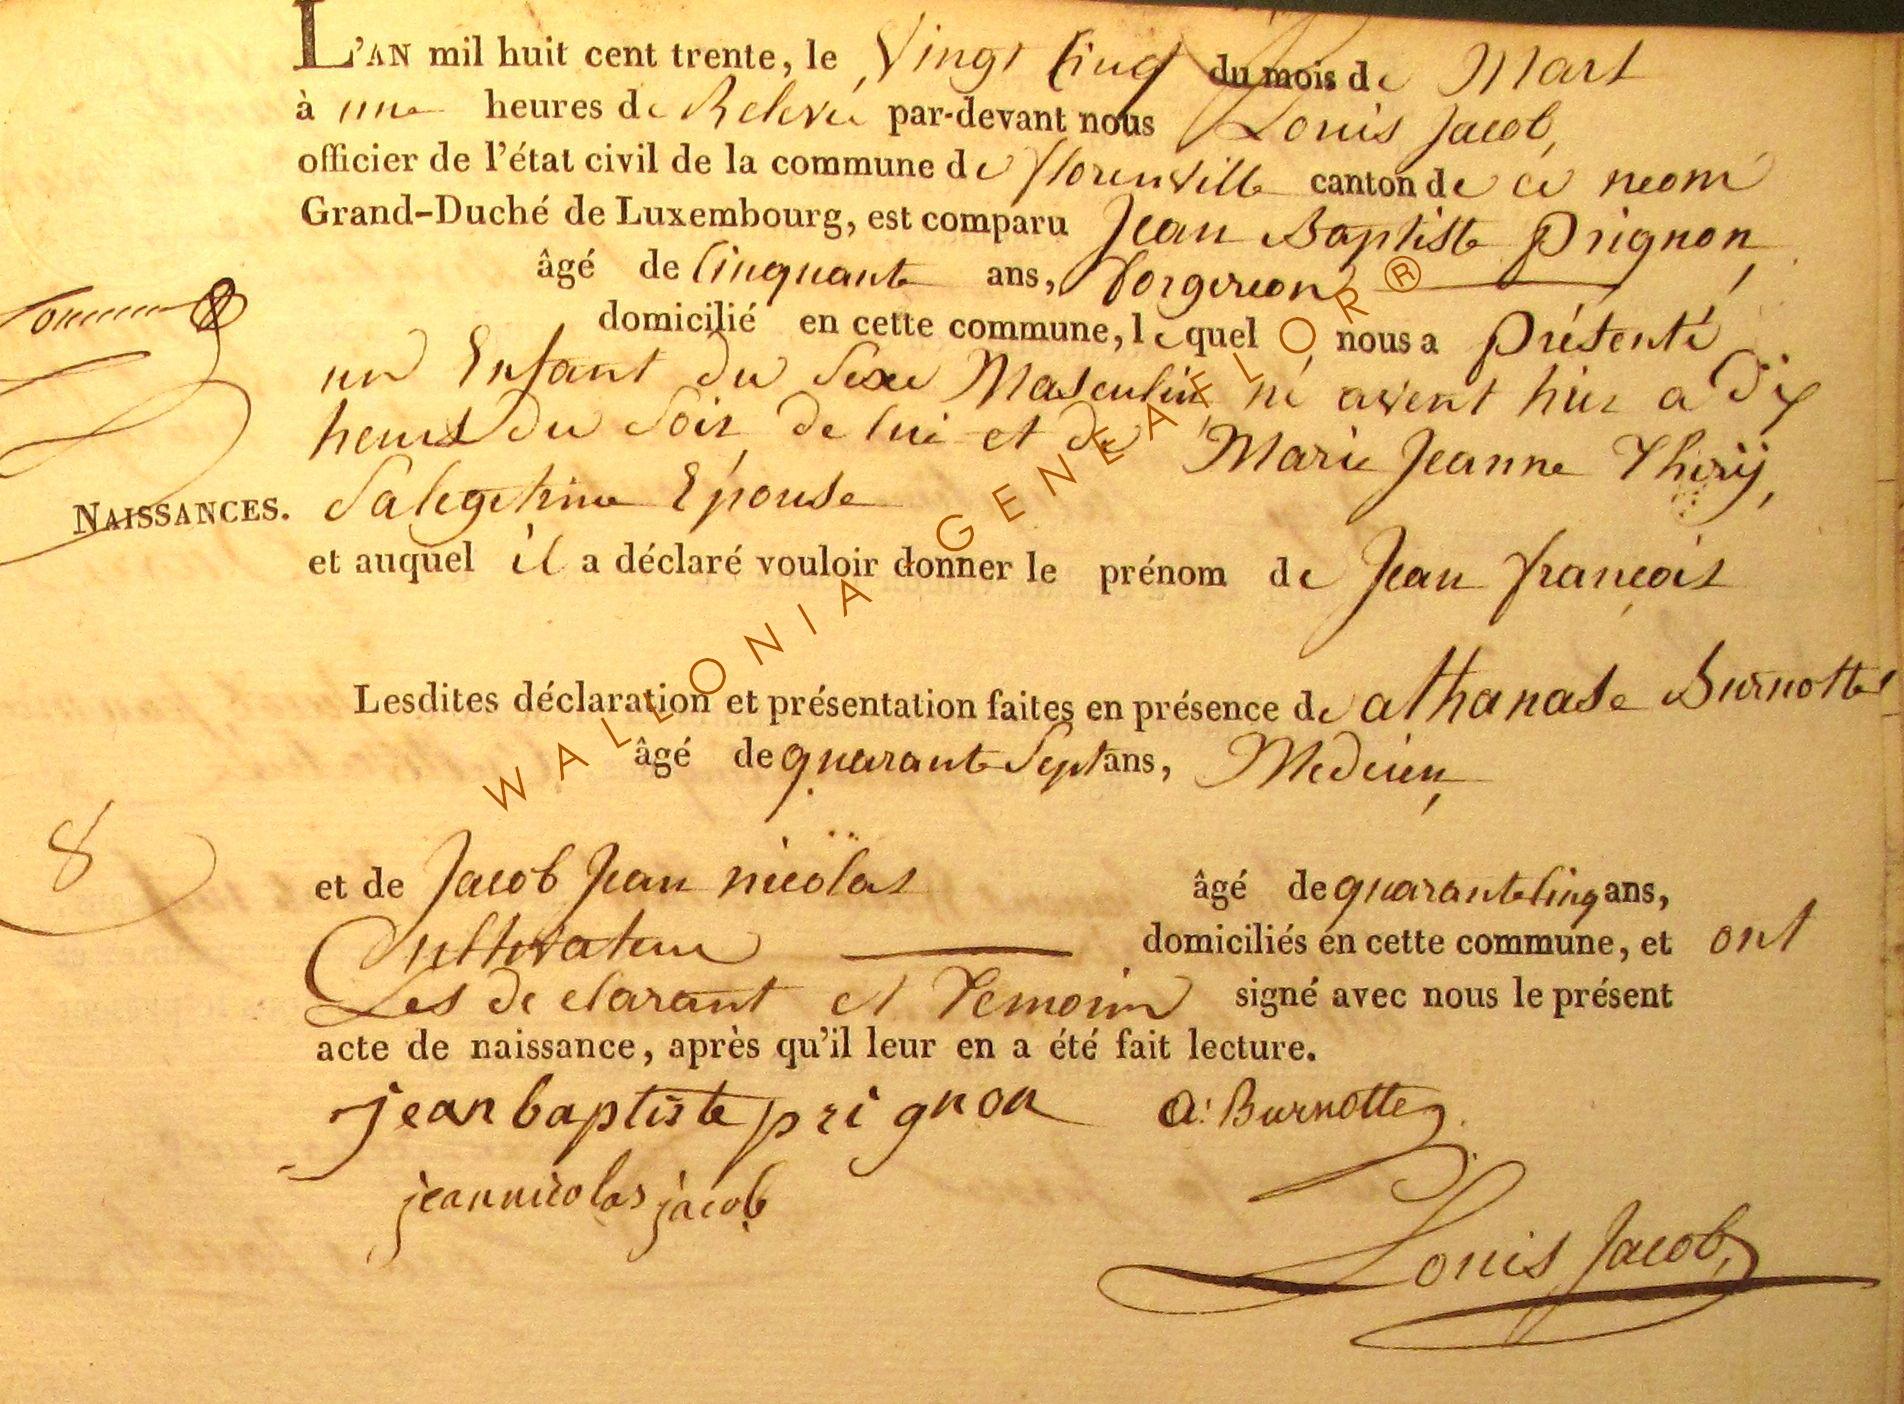 L'AN mil huit cent trente, le Vingt Cinq du mois de Mars
à une heures de Relevé par-devant nous Louis Jacob,
officier de l'état civil de la commune de florenville canton de ce nom
Grand-Duché de Luxembourg, est comparu Jean Baptiste Prignon,
âgé de Cinquante ans, forgeron
domicilié en cette commune, lequel nous a présenté
un Enfant du Sexe Masculin, né avent hier a Dix
heurs du Soir, de lui et de Marie Jeanne Thiry,
NAISSANCES. Salegitime Epouse
et auquel il a déclaré vouloir donner le prénom de Jean françois
Lesdites déclaration et présentation faites en présence de athanase Burnotte
âgé de quarante Sept ans, Medecin,
8
et de Jacob Jean nicolas âgé de quarante Cinq ans,
Cultivateur domiciliés en cette commune, et ont
Les de clarant et Temoin signé avec nous le présent
acte de naissance, après qu'il leur en a été fait lecture.
jean baptiste prignon a: Burnotte
jean nicolas jacob
Louis Jacob,
WALLONIA GENEAFLOR®